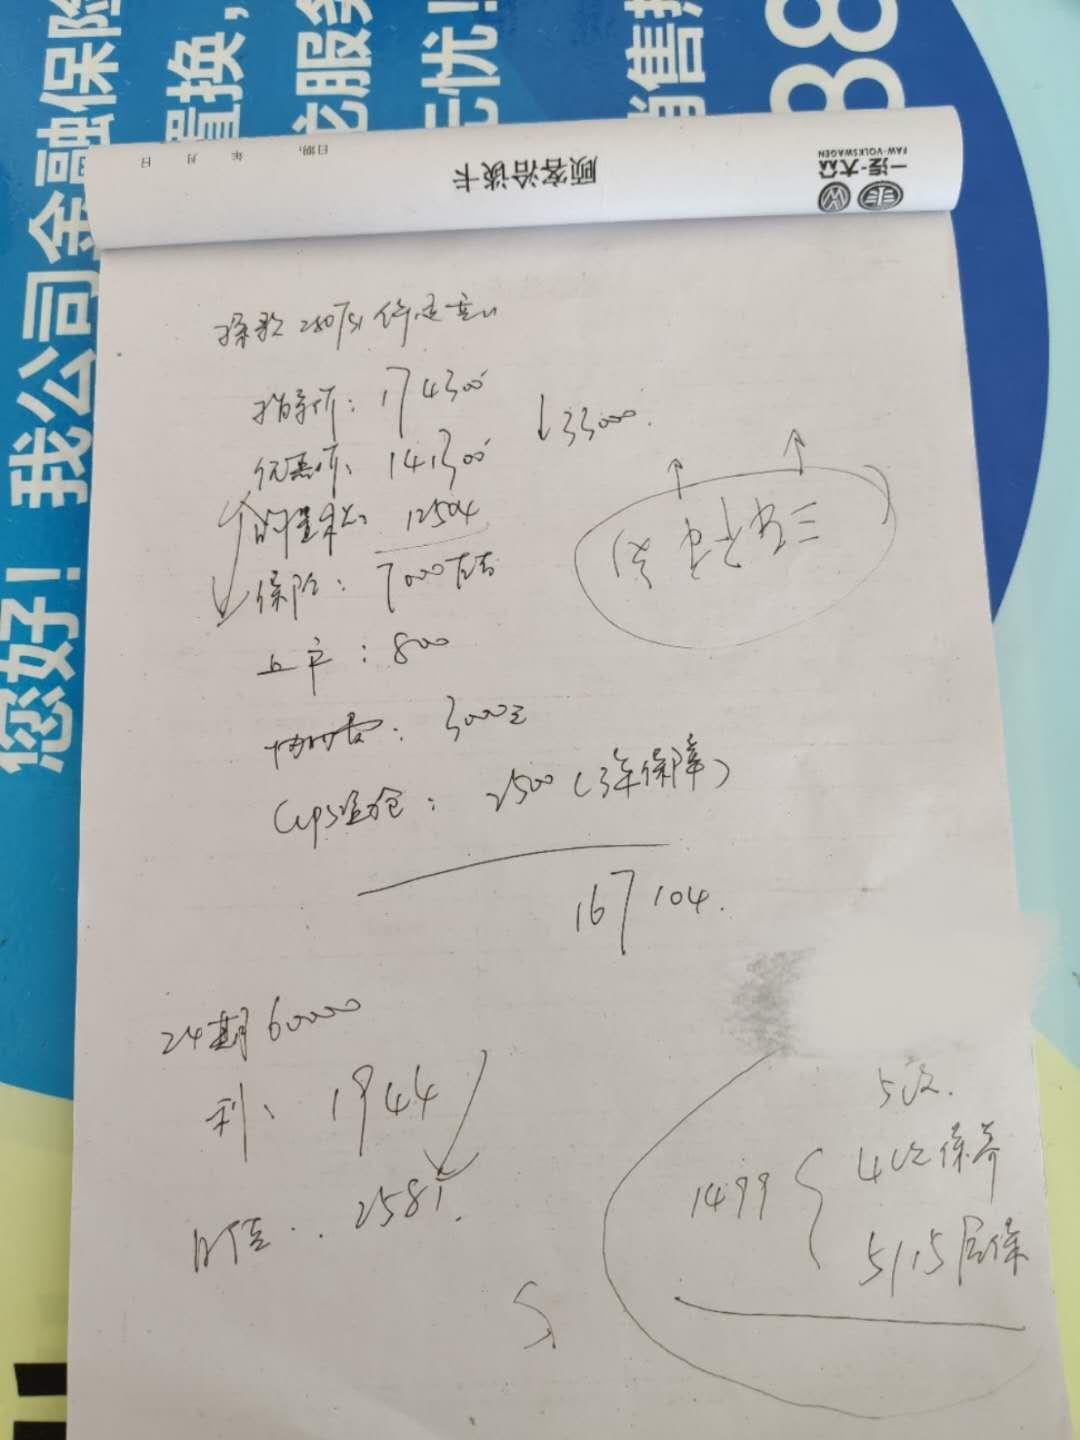 我公司金融保险
您好!
置换,
服务
无忧!
销售热
88
一汽-大众
FAW-VOLKSWAGEN
顾客洽谈卡
日期: 年 月 日
探歌 280TSI
指导价: 174300 ↓33000.
优惠价: 141300
购置税: 12504
保险: 7000左右
上户: 800
3000元
GPS盗抢: 2500(3年保障)
167104.
24期 60000
利: 1944
月信: 2581.
5次.
1499
4次保养
5/15 延保